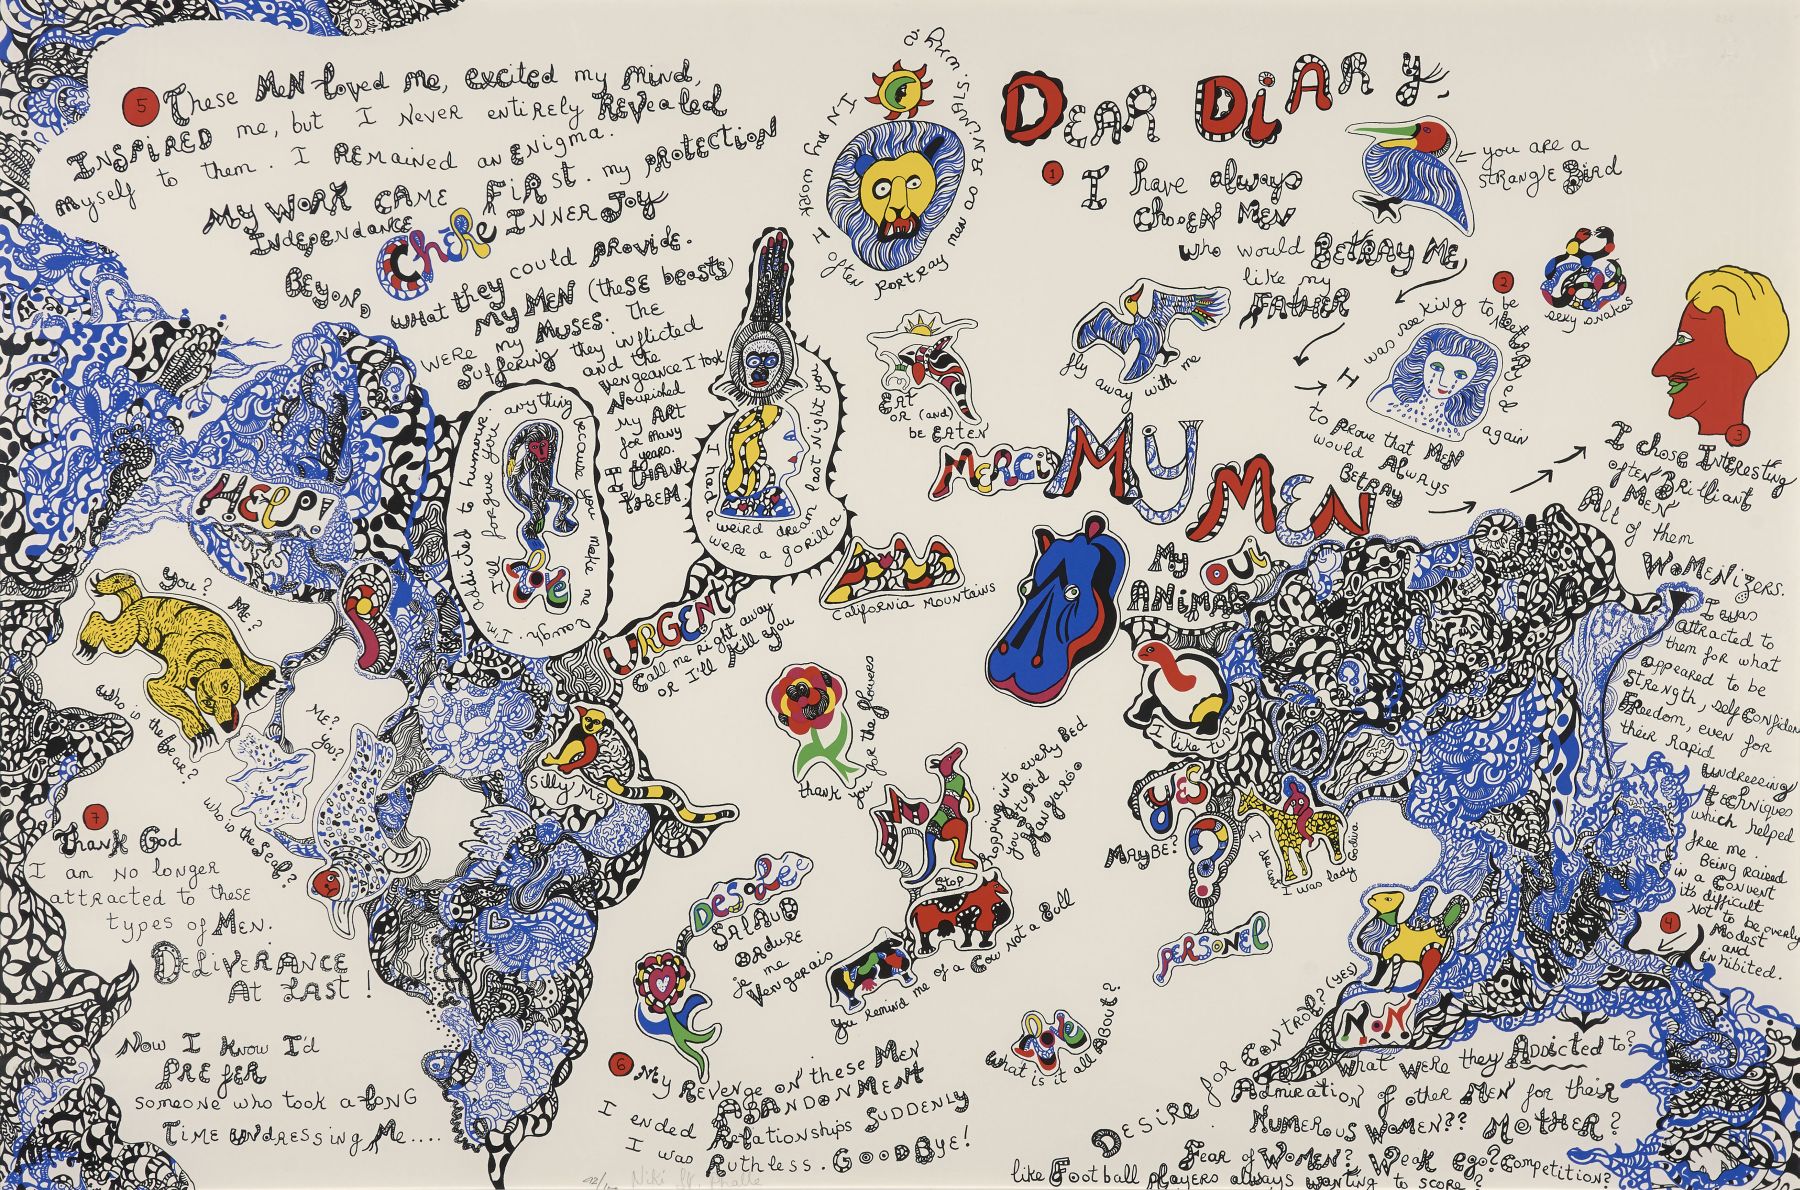 DEAR DIARY,
1
I have always
CHOSEN MEN
who would BETRAY ME
like my
FATHER
you are a
STRANGE Bird
2
I was seeking to be
again
to prove that MEN
would Always
BETRAY
sexy snakes
3
I chose INteresting
often Brilliant
MEN
All of them
WOMENizers.
I was
attracted to
them for what
appeared to be
Strength, self Confiden
Freedom, even for
their rapid
undressing
techniques
which helped
free me.
BEING raised
in a Convent
its difficult
NOT to be overly
Modest
and
inhibited.
4
DESIRE for CONTROL? (YES)
What were they ADDicted to?
Admiration of other MEN for their
NUMEROUS WOMEN?? MOTHER?
Fear of WOMEN? Weak ego? Competition?
like Football players always wanting to score?
5
These MEN loved me, excited my mind,
INSPIRED me, but I NEVER entirely REVEALED
myself to them. I REMAINED an ENigma.
MY WORK CAME FIRST. my PROTECTION
INDEPENDANCE
INNER JOY
Chère
BEYOND
what they could PROVIDE.
MY MEN (these beasts)
WERE my MUSES. THE
Suffering they inflicted
and the
vengeance I took
Nourished
my ART
for many
years.
I THANK
THEM.
6
My REVENGE on these MEN
ABANDONMENT
I ended Relationships SUDDENLY
I was Ruthless. GOODBYE!
7
THANK God
I am NO longer
attracted to these
types of MEN.
DELIVERANCE
AT LAST!
NOW I know I'd
PREFER
someone who took a LONG
TIME UNDRESSING ME....
IN MY WORK I often PORTRAY men as ANIMALS. WHY?
fly away with me
EAT
OR (and)
be EATEN
MERCI
MY MEN
MY
OUI
ANIMALS
California Mountains
HELP!
I'll forgive you anything because you make me laugh. I'm addicted to humour.
love
I had a weird dream last night you were a gorilla
URGENT
Call me right away
OR I'll kill you
YOU? ME?
Who is the bear?
ME? YOU?
who is the seal?
Silly ME
thank you for the flowers
Stop
hopping into every bed
you stupid
Kangaroo
You remind me of a Cow Not a Bull
Desolée
SALAUD
ORDURE
je me
Vengerais
I like turtles
YES
MAYBE?
?
PERSONEL
I dreamt I was lady Godiva
NON
love
What is it all About?
Niki St. Phalle